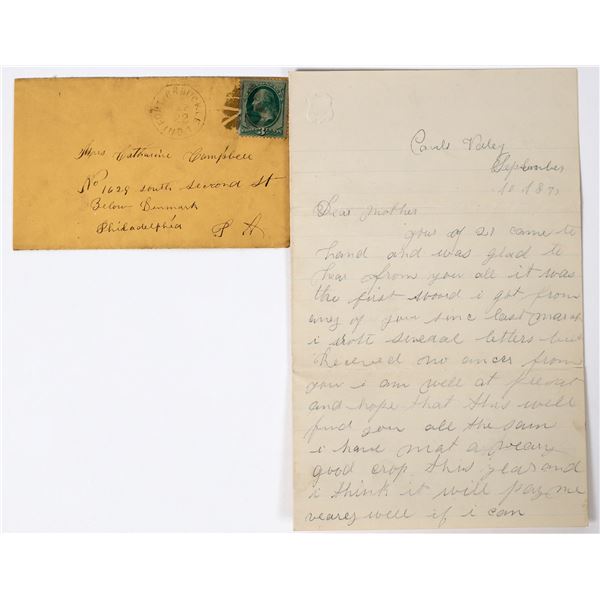 FORT ARBUCKLE
22
IND. T.
3
Mrs Catharine Campbell
No 1628 south second St
Below Denmark
Philadelphia P A
Pauls Valey
September
10 187
Dear mother
your of 21 came to
hand and was glad to
hear from you all it was
the first word i got from
eney of you sinc last march
i wrote several letters but
Received no ancer from
you i am well at present
and hope that this will
find you all the sam
i have mat a veary
good crop this year and
i think it will pay me
vearey well if i can